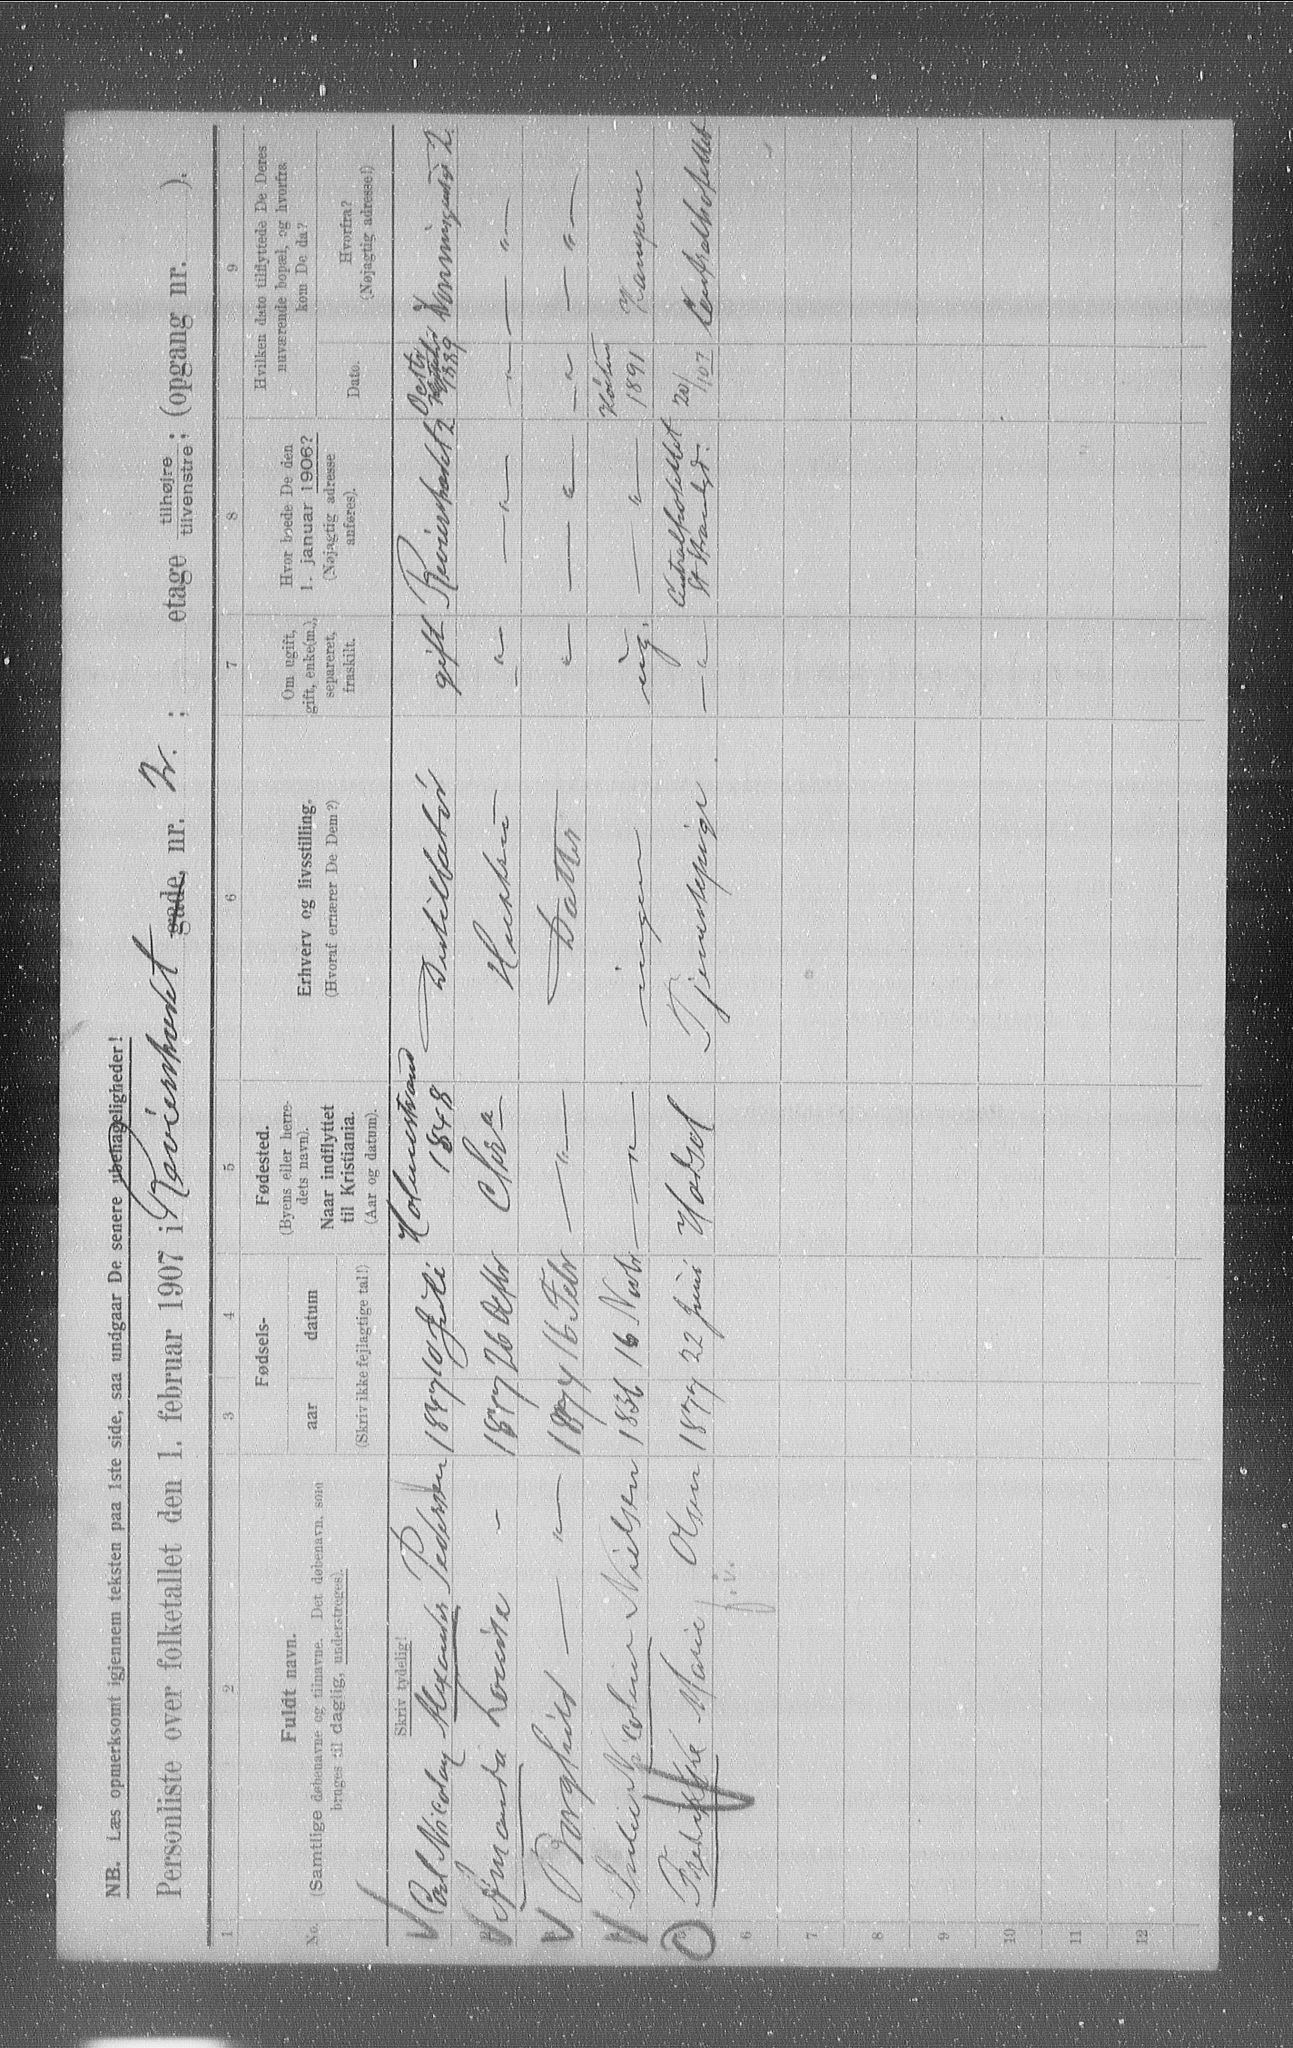 NB. Læs opmerksomt igjennem teksten paa 1ste side, saa undgaar De senere ubehageligheder!
Personliste over folketallet den 1. februar 1907 i Revierstrædet gade, nr. 2. ; etage tilhøjre tilvenstre ; (opgang nr. ).
1 2 3 4 5 6 7 8 9
No.
Fuldt navn.
(Samtlige døbenavne og tilnavne. Det døbenavn, som
bruges til daglig, understreges).
Skriv tydelig!
Fødsels-
aar datum
(Skriv ikke fejlagtige tal!)
Fødested.
(Byens eller herre-
dets navn).
Naar indflyttet
til Kristiania.
(Aar og datum).
Erhverv og livsstilling.
(Hvoraf ernærer De Dem?)
Om ugift,
gift, enke(m.),
separeret,
fraskilt.
Hvor boede De den
1. januar 1906?
(Nøjagtig adresse
anføres).
Hvilken dato tilflyttede De Deres
nuværende bopæl, og hvorfra
kom De da?
Dato.
Hvorfra?
(Nøjagtig adresse!)
Carl Nicolay Alexander Pedersen 1847 10 Juli Holmestrand 1848 Destillatør gift Revierstrædet 2 Octbr 1889
Amanda Louise - 26 Chr.a Hustru — " — — " — — " — — " —
Borghild — " — 1874 16 Febr — " — Datter — " — — " — — " — — " —
Nielsen 1836 16 Novbr — " — ingen ug. — " — Høsten 1891 Kampen
Fredrikke Marie Olsen 1877 22 Juni Hadsel Tjenestepige — " — Centralhotellet 20/1 07 Centralhotellet
6
7
8
9
10
11
12